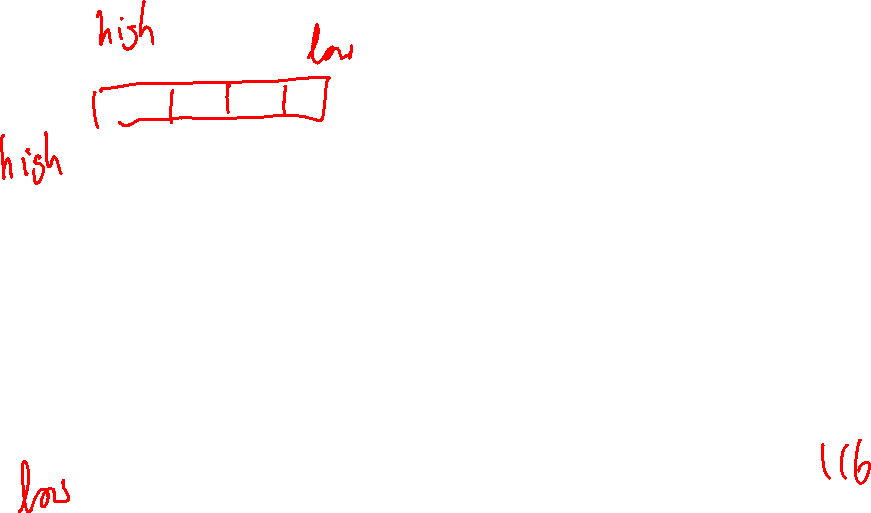 high
low
high
low
116